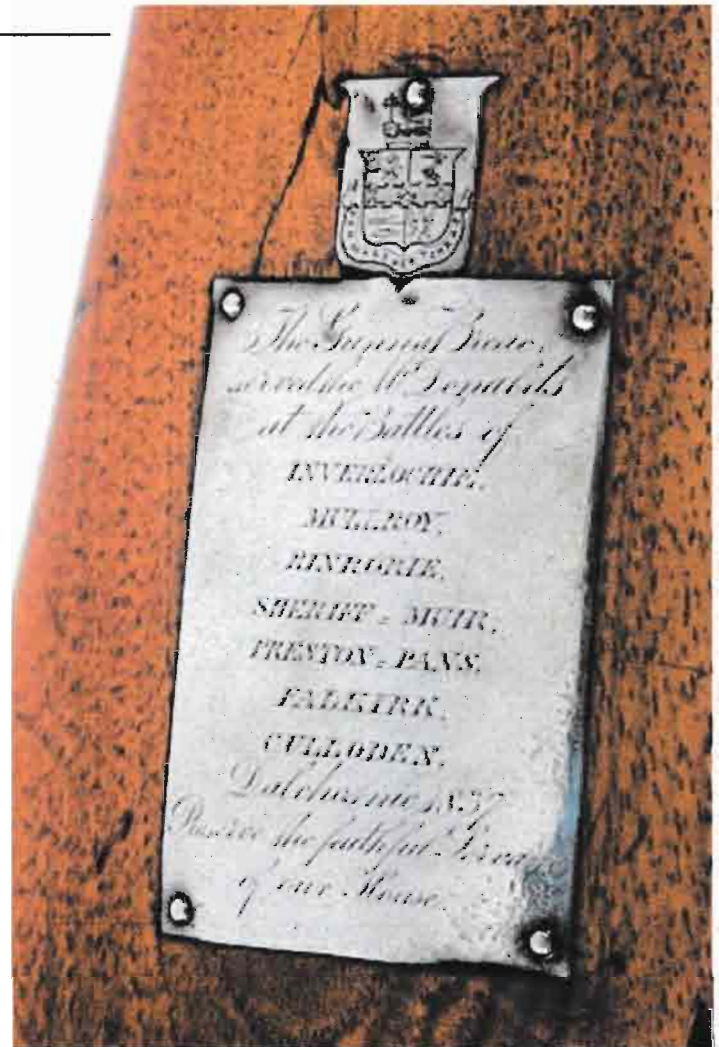 The
served the McDonalds
at the Battles of
INVERLOCHIE,
MULLROY,
RINRORIE,
SHERIFF = MUIR,
PRESTON = PANS,
FALKIRK,
CULLODEN.
Dalchosnie 1837
Preserve the faithful Servant
of our House.